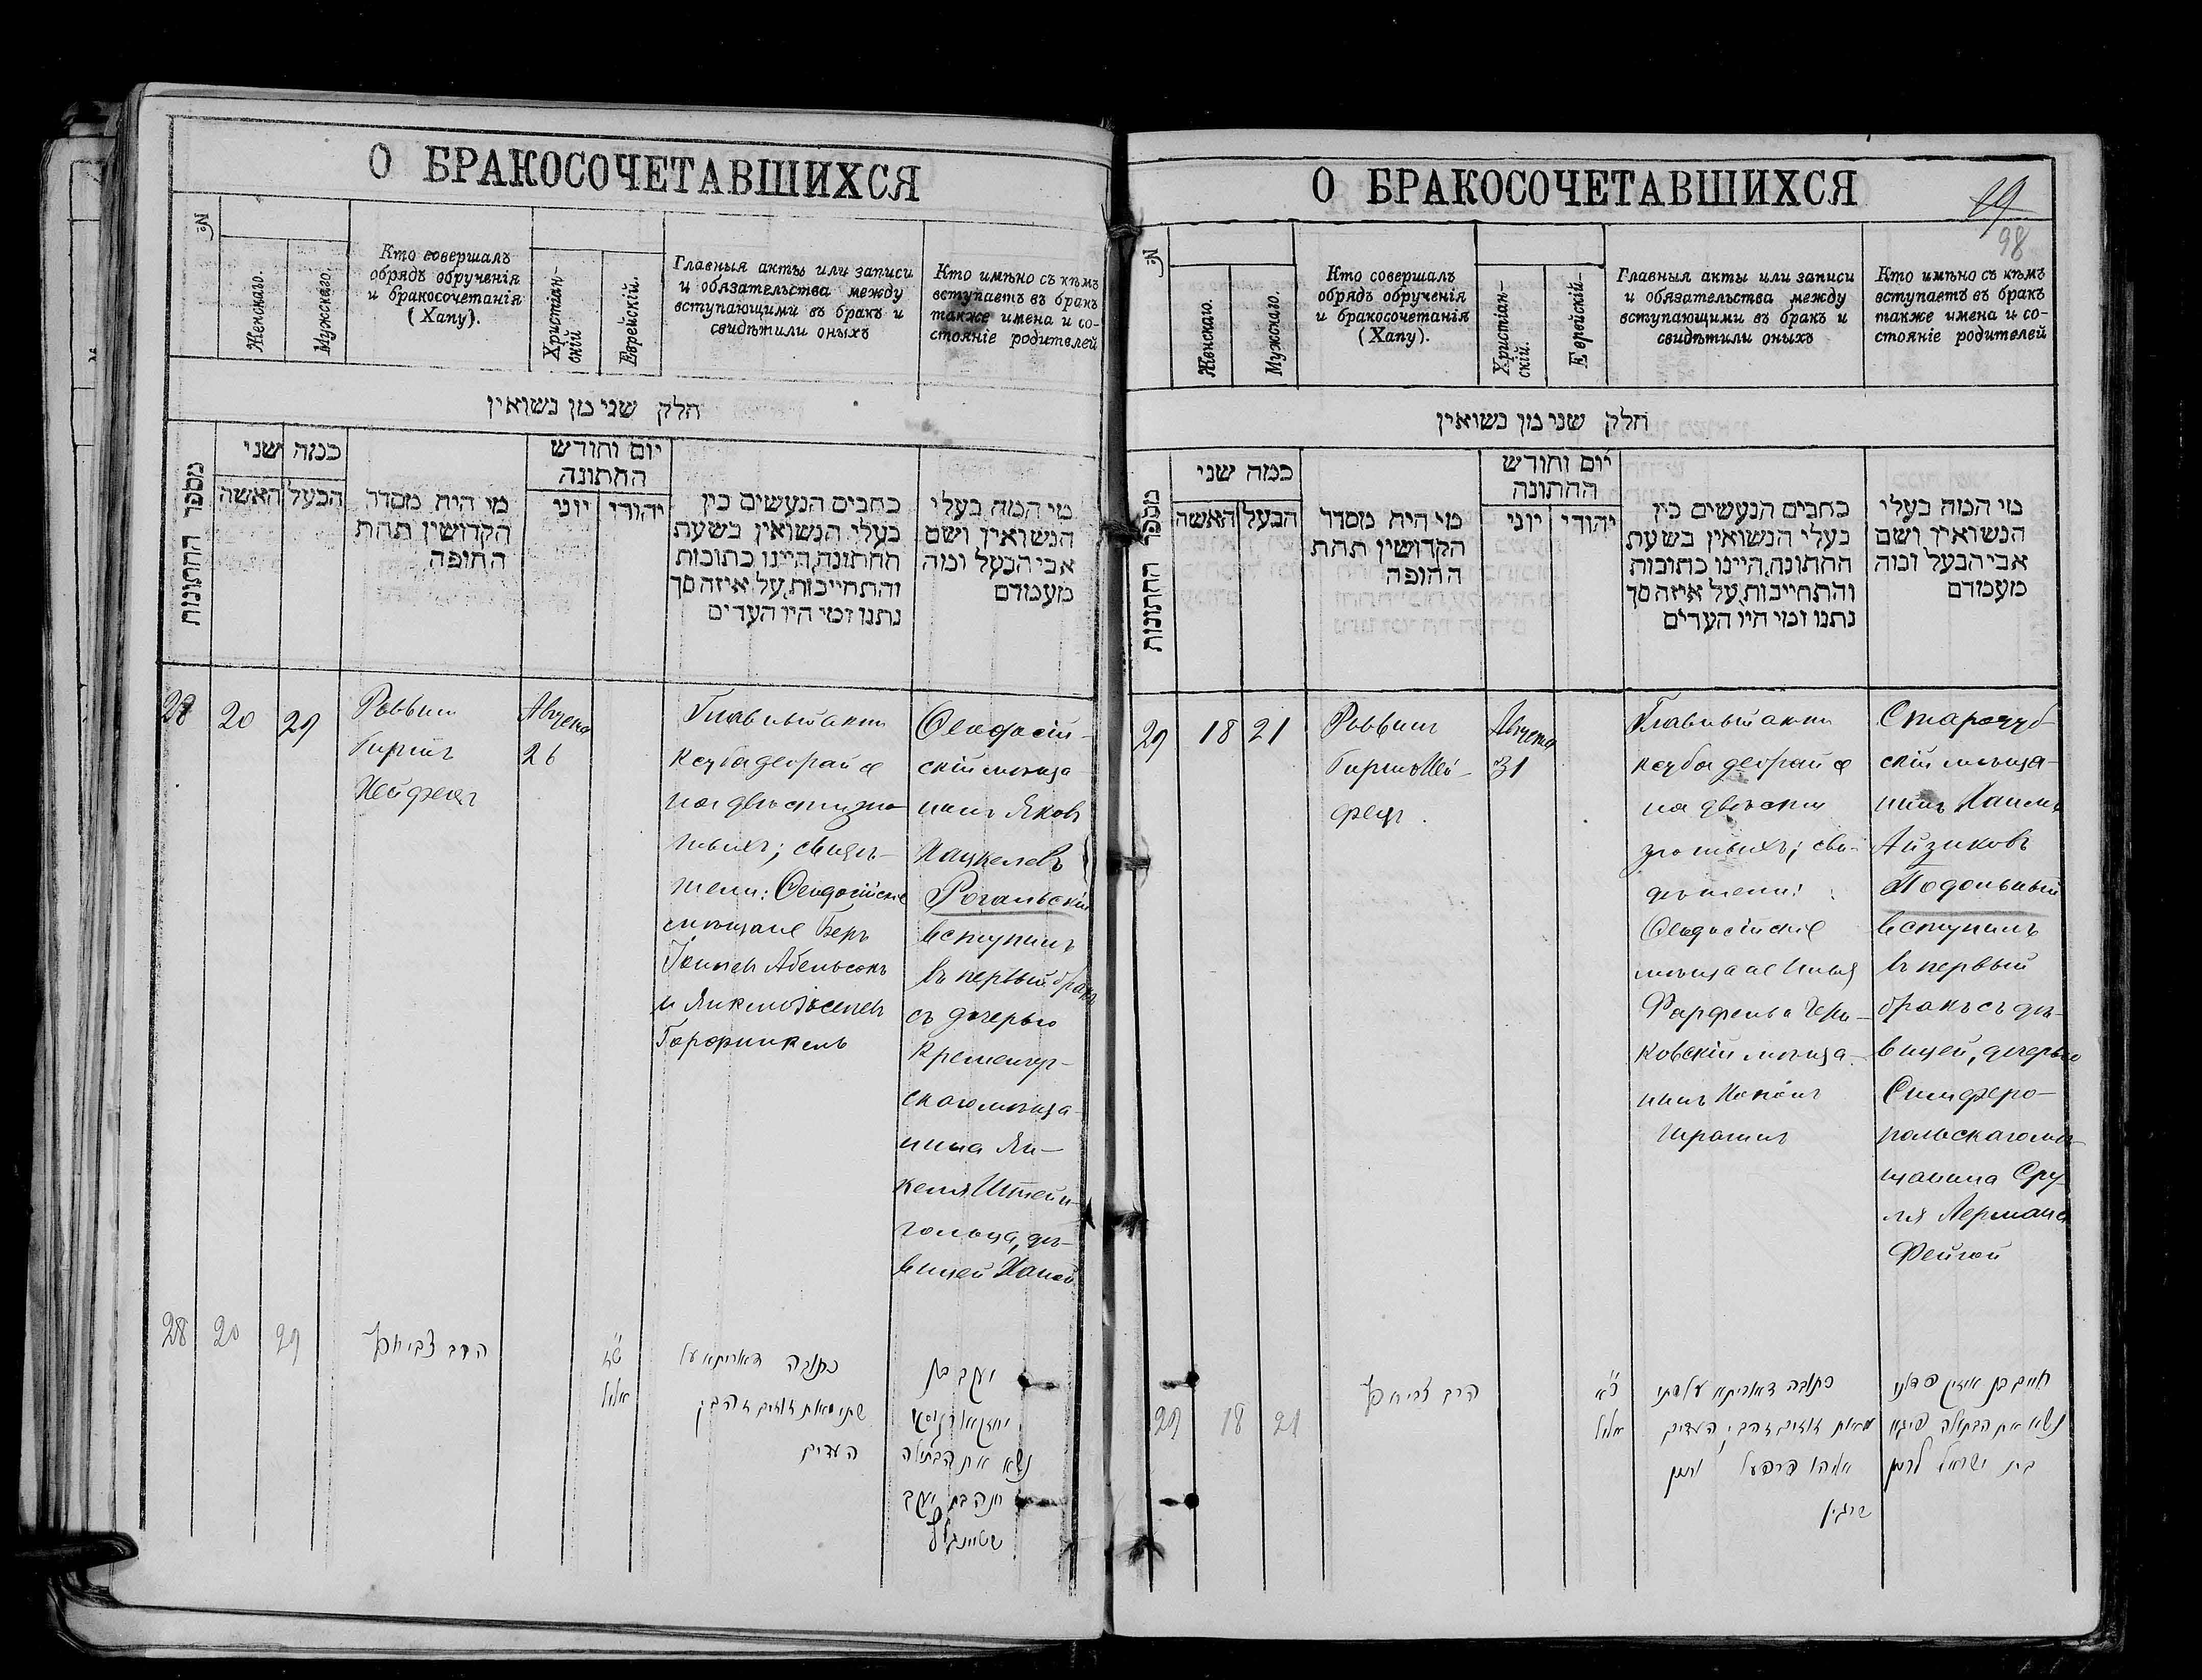 О БРАКОСОЧЕТАВШИХСЯ
№
Женскаго.
Мужскаго.
Кто совершалъ
обрядъ обрученія
и бракосочетанія
(Хапу).
Христіан-
скій
Еврейскій.
Главныя акты или записи
и обязательства между
вступающими въ бракъ и
свидѣтили оныхъ
Кто имѣно съ кѣмъ
вступаетъ въ бракъ
также имена и со-
стояніе родителей
חלק שני מן נשואין
מספר החתונות
כמה שני
הבעל האשה
מי היה מסדר
הקדושין תחת
החופה
יום וחודש
החתונה
יהודי יוני
כתבים הנעשים בין
בעלי הנשואין בשעת
החתונה, היינו כתובות
והתחייבות, על איזה סך
נתנו ומי היו העדים
מי המה בעלי
הנשואין ושם
אבי הבעל ומה
מעמדם
28
20
29
Раввин
Гиршъ
Хейфец
Августа
26
Главный акт
на двѣсти зло
тыхъ; свидѣ-
тели: Ѳеодосійскіе
мѣщане Беръ
Абельсонъ
Горфинкель
Ѳеодосій-
скій мѣща
нинъ Яковъ
Хацкелевъ
Рогальскій
вступилъ
въ первый бракъ
съ дочерью
Кременчуг-
скаго мѣща-
нина Ян-
келя Штейн-
гольца, дѣ-
вицей Ханой
28
20
29
הרב צבי חפץ
אלול
כתובה דאריתא על
שתי מאות זוזים זהבים
העדים
יעקב בן
נשא את הבתולה
חנה בת יעקב
О БРАКОСОЧЕТАВШИХСЯ
29
98
№
Женскаго.
Мужскаго.
Кто совершалъ
обрядъ обрученія
и бракосочетанія
(Хапу).
Христіан-
скій.
Еврейскій-
Главныя акты или записи
и обязательства между
вступающими въ бракъ и
свидѣтили оныхъ
Кто имѣно съ кѣмъ
вступаетъ въ бракъ
также имена и со-
стояніе родителей
חלק שני מן נשואין
מספר החתונות
כמה שני
הבעל האשה
מי היה מסדר
הקדושין תחת
החופה
יום וחודש
החתונה
יהודי יוני
כתבים הנעשים בין
בעלי הנשואין בשעת
החתונה, היינו כתובות
והתחייבות, על איזה סך
נתנו ומי היו העדים
מי המה בעלי
הנשואין ושם
אבי הבעל ומה
מעמדם
29
18
21
Раввин
Гирш Хей-
фец
Августа
31
Главный акт
на двѣсти
злотыхъ; сви-
дѣтели:
Ѳеодосійскіе
мѣщане Илья
Фарфель и Чери-
ковскій мѣща-
нинъ
Стародуб
скій мѣща-
нинъ Хаимъ
Айзиковъ
Подольный
вступилъ
въ первый
бракъ съ дѣ-
вицей, дочерью
Симферо-
польскаго мѣ-
щанина Сру-
ля Лермана
Фейгой
29
18
21
הרב צבי חפץ
אלול
כתובה דאוריתא על שתי
מאות זוזים זהבים, העדים
אליהו פרפעל
חיים בן אייזיק
נשא את הבתולה פיגא
בת ישראל לרמן